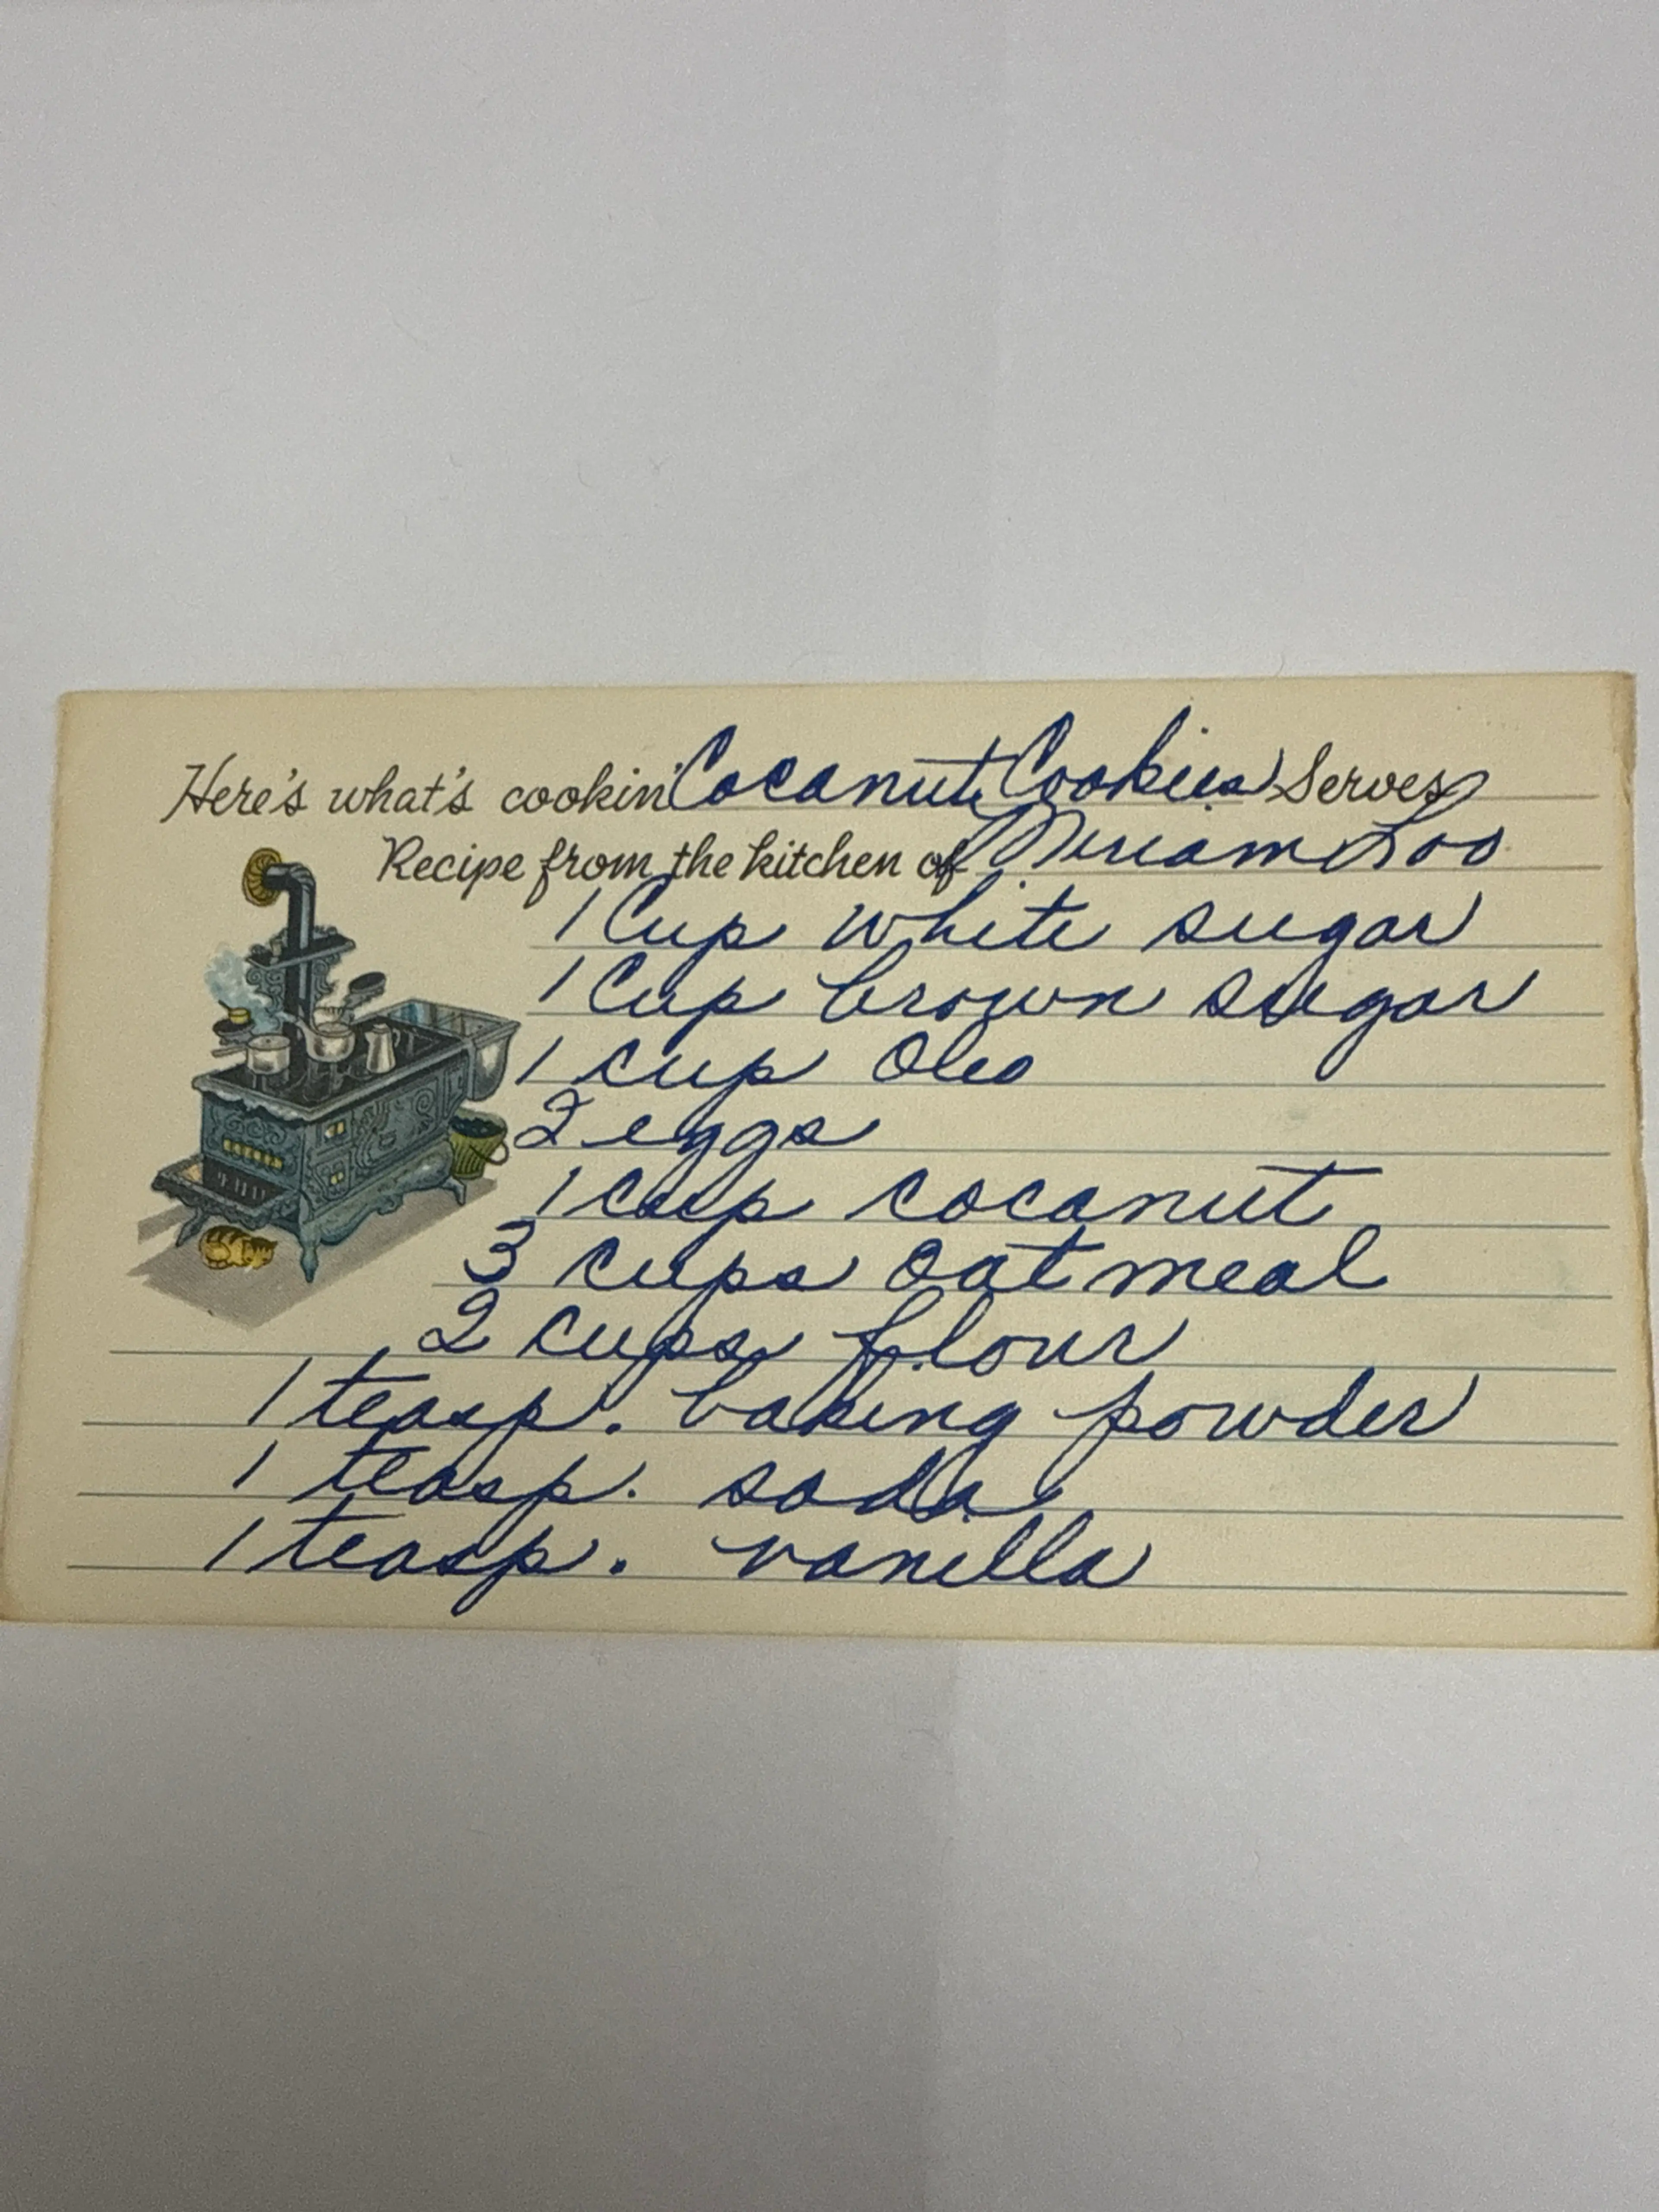 Here's what's cookin' Coconut Cookies Serves
Recipe from the kitchen of Miriam Loo
1 Cup white sugar
1 Cup brown sugar
1 cup Oleo
2 eggs
1 cup coconut
3 cups oatmeal
2 cups flour
1 teasp. baking powder
1 teasp. soda
1 teasp. vanilla